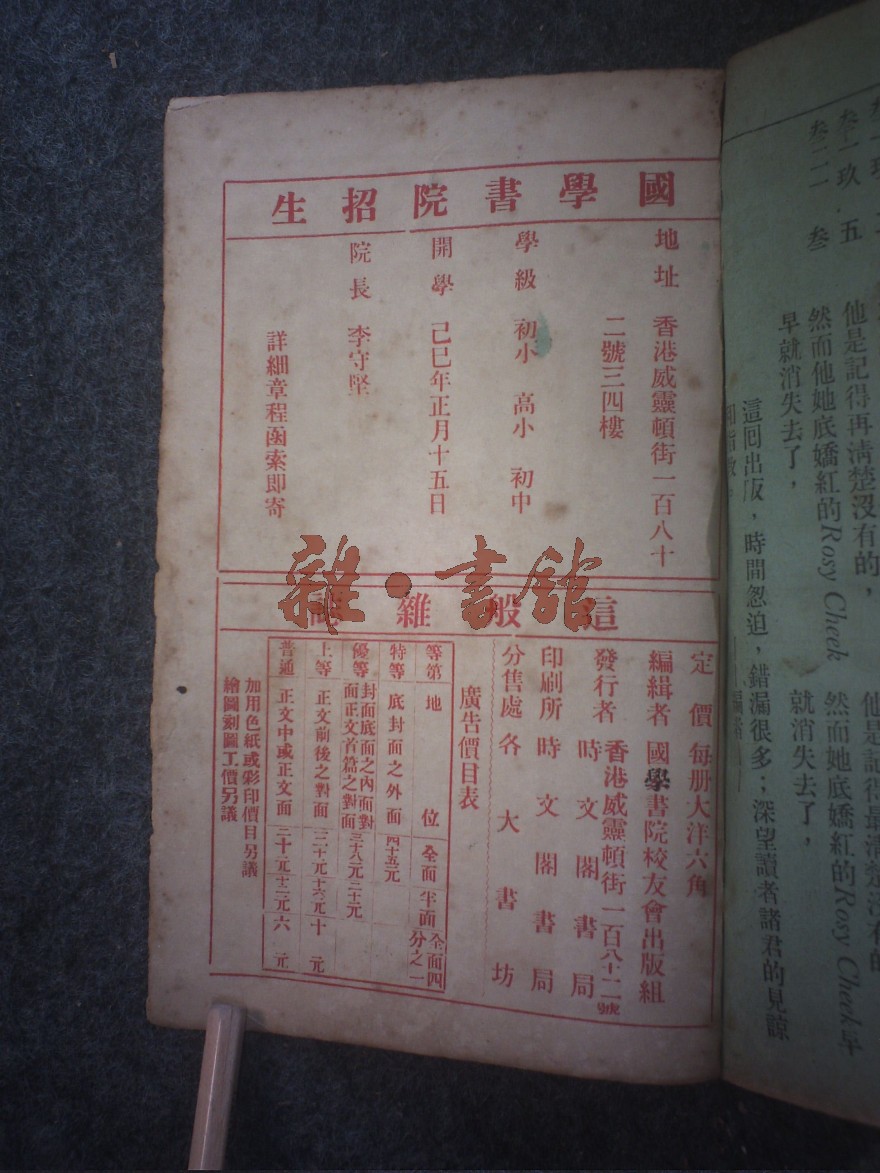 國學書院招生
地址 香港威靈頓街一百八十
二號三四樓
學級 初小 高小 初中
開學 己巳年正月十五日
院長 李守堅
詳細章程函索即寄
這般雜
定價 每册大洋六角
編緝者 國學書院校友會出版組
發行者 香港威靈頓街一百八十二號
時文閣書局
印刷所 時文閣書局
分售處 各大書坊
廣告價目表
等第 地位 全面 半面 全面四分之一
特等 底封面之外面 四十五元
優等 封面底面之內面對面正文首篇之對面 三十八元 二十元
上等 正文前後之對面 三十元 十六元 十元
普通 正文中或正文面 二十元 十二元 六元
加用色紙或彩印價目另議
繪圖刻圖工價另議
雜·書館
叁二一 叁
叁一玖 五
他是記得再淸楚沒有的，
然而他她底嬌紅的Rosy Cheek
早就消失去了，
然而她底嬌紅的Rosy Cheek早
就消失去了，
這回出版，時間怱迫，錯漏很多；深望讀者諸君的見諒